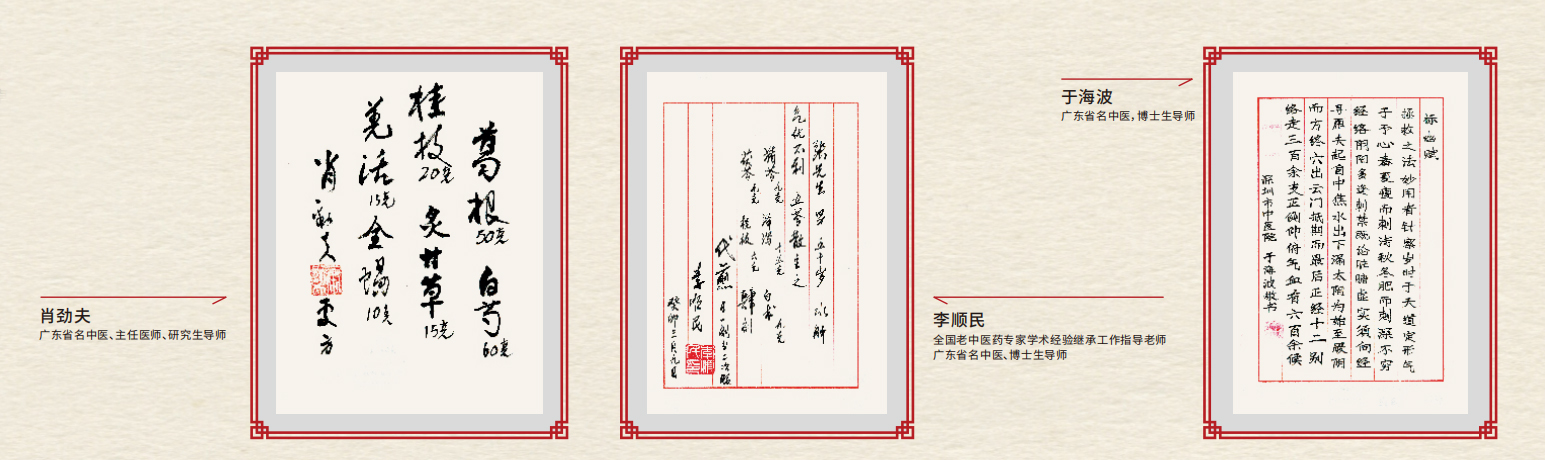 葛根50克 白芍60克
桂枝20克 炙甘草15克
羌活15克 全蝎10克
肖劲夫
处方
肖劲夫
广东省名中医、主任医师、研究生导师
梁先生 男 五十岁
气化不利 五苓散主之
猪苓九克 泽泻十五克 白术九克
茯苓九克 桂枝六克 肆剂
代煎 日一剂分二次服
李顺民
癸卯三月九日
李顺民
全国老中医药专家学术经验继承工作指导老师
广东省名中医、博士生导师
于海波
广东省名中医，博士生导师
标幽赋
拯救之法妙用者针察岁时于天道定形气
于予心春夏瘦而刺浅秋冬肥而刺深不穷
经络阴阳多逢刺禁既论脏腑虚实须向经
寻原夫起自中焦水出下漏太阴为始至厥阴
而方终穴出云门抵期而最后正经十二别
络走三百余支正侧仰俯气血有六百余候
深圳市中医院 于海波敬书